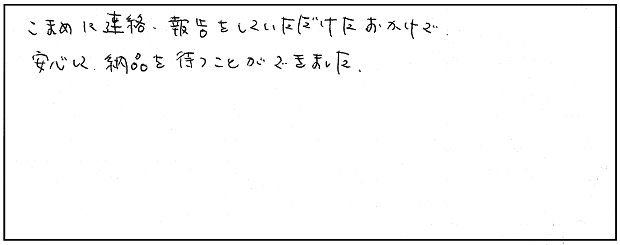 こまめに連絡、報告をしていただけたおかげで、
安心して、納品を待つことができました。